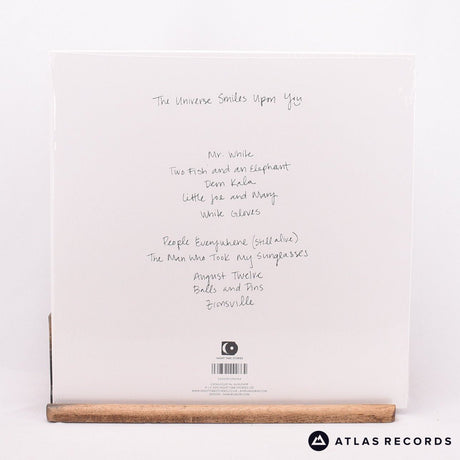 The Universe Smiles Upon You
Mr. White
Two Fish and an Elephant
Dern Kala
Little Joe and Mary
White Gloves
People Everywhere (still alive)
The Man Who Took My Sunglasses
August Twelve
Balls and Pins
Zionsville
ATLAS RECORDS